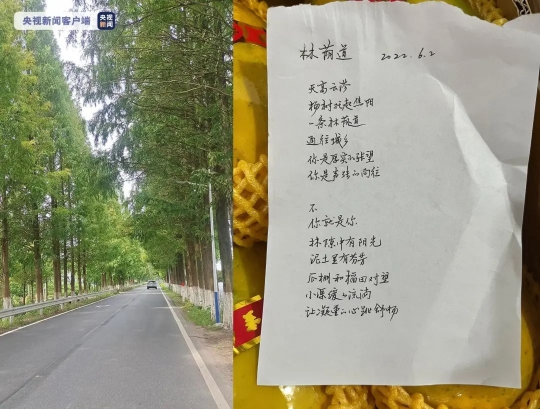 央视新闻客户端
央视新闻
林荫道 2022.6.2
天高云淡
杨树起阳
一条林荫道
通往城乡
你是的张望
你是的向往
不
你就是你
林隙中有阳光
泥土里有芬芳
瓜棚和稻田对望
小溪缓缓流淌
让凝重的心跳舒畅